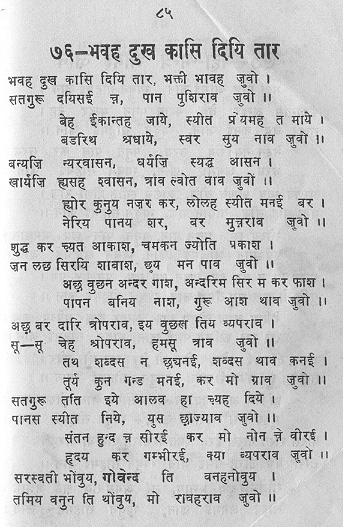 ८५
७६—भवह दुख कासि दियि तार
भवह दुख कासि दियि तार, भक्ती भावह जुवो ।।
सतगुरू दयिसई त्र, पान पुशिराव जुवो ।।
बेह ईकान्तह जाये, स्यीत प्रंयमह त माये ।
बडरिथ श्रधाये, स्वर सुय नाव जुवो ।।
बन्यज़ि न्यरवासन, धर्यज़ि स्यद्ध आसन ।
खार्यज़ि ह्यसह श्वासन, त्राव ल्वोत वाव जुवो ।।
ह्योर कुनुय नज़र कर, लोलह स्यीत मनई बर ।
नेरिय पानय शर, बर मुत्र्राव जुवो ।।
शुद्ध कर च़्यत आकाश, चमकन ज्योति प्रकाश ।
ज़न लछ सिरयि शाबाश, छ्य मन पाव जुवो ।।
अछ वुछन अन्दर गाश, अन्दरिम सिर म कर फाश ।
पापन बनिय नाश, गुरू आश थाव जुवो ।।
अछ बर दारि त्रोपराव, इय वुछख तिय व्यपराव ।
सू—सू च़ेह श्रोपराव, हमसू त्राव जुवो ।।
तथ शब्दस न छ्यनई, शब्दस थाव कनई ।
तुर्य कुन गन्ड मनई, कर मो ग्राव जुवो ।।
सतगुरू तति इये आलव हा च़्यह दिये ।
पानस स्यीत निये, युस छाज्याव जुवो ।।
संतन हुन्द च़ सीरई कर मो नोन च़े वीरई ।
हृदय कर गम्भीरई, क्या व्यपराव जुवो ।।
सरस्वती भोवुय, गोवेन्द ति वनहनोवुय ।
तमिय वनुन ति थोवुय, मो रावहराव जुवो ।।